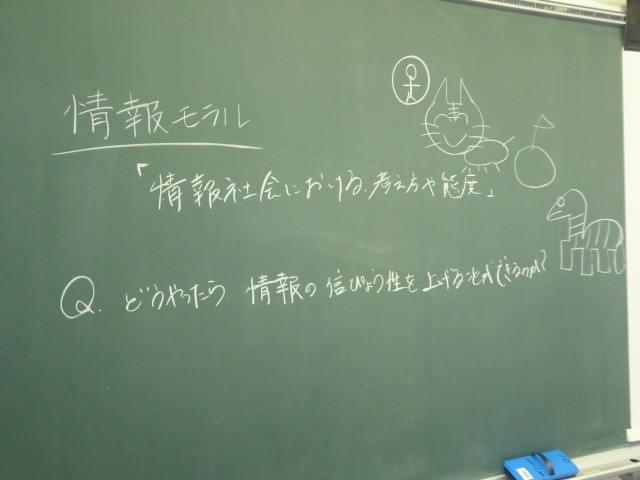 情報モラル
「情報社会における考え方や態度」
Q. どうやったら 情報の信ぴょう性を上げることができるのか?